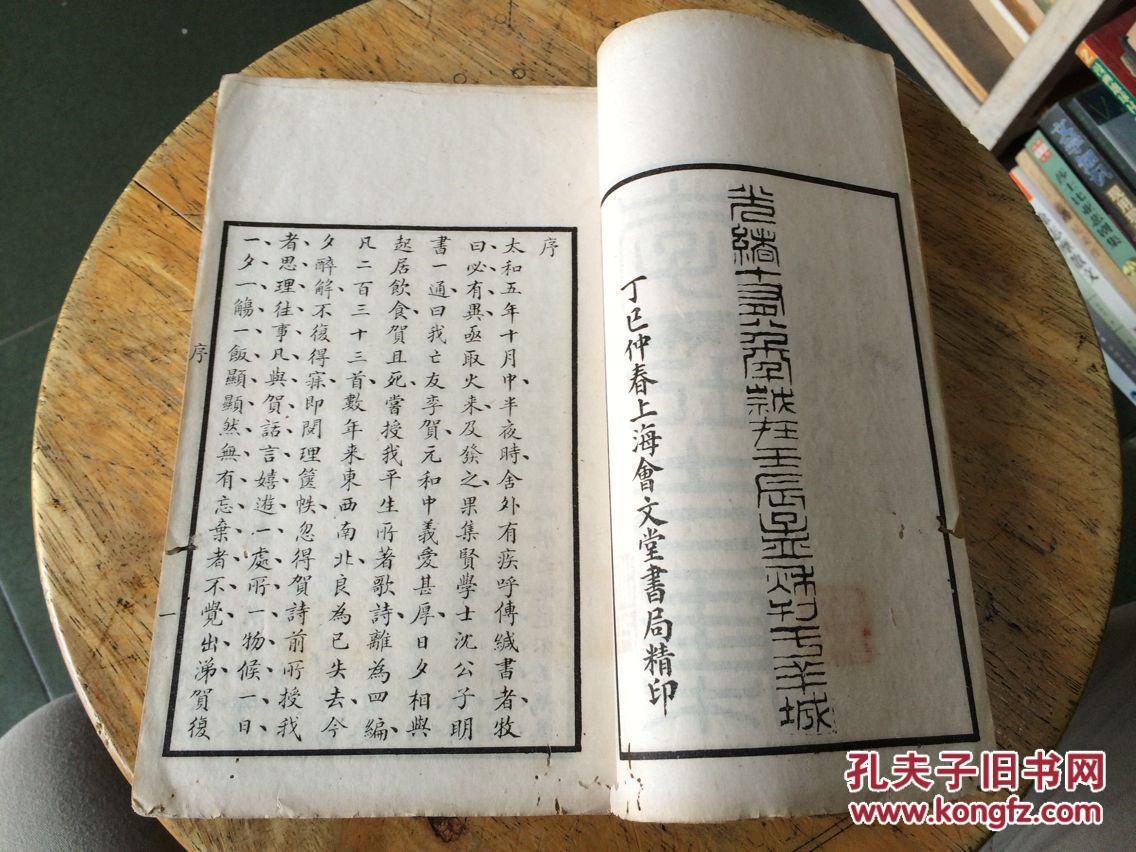 光緒十有八年歲在壬辰孟秋刊于羊城
丁巳仲春上海會文堂書局精印
序
太和五年十月中、半夜時、舍外有疾呼傳緘書者、牧
曰、必有異、亟取火来、及發之、果集賢學士沈公子明
書一通、曰我亡友李賀、元和中義愛甚厚、日夕相與
起居飲食、賀且死、嘗授我平生所著歌詩、離為四編、
凡二百三十三首、數年来東西南北、良為已失去、今
夕醉解不復得寐、即閱理篋帙、忽得賀詩前所授我
者、思理往事、凡與賀話言嬉遊、一處所、一物候、一日、
一夕、一觴、一飯、顯顯然無有忘棄者、不覺出涕、賀復
序
一
莎士比亚悲剧集
孔夫子旧书网
www.kongfz.com